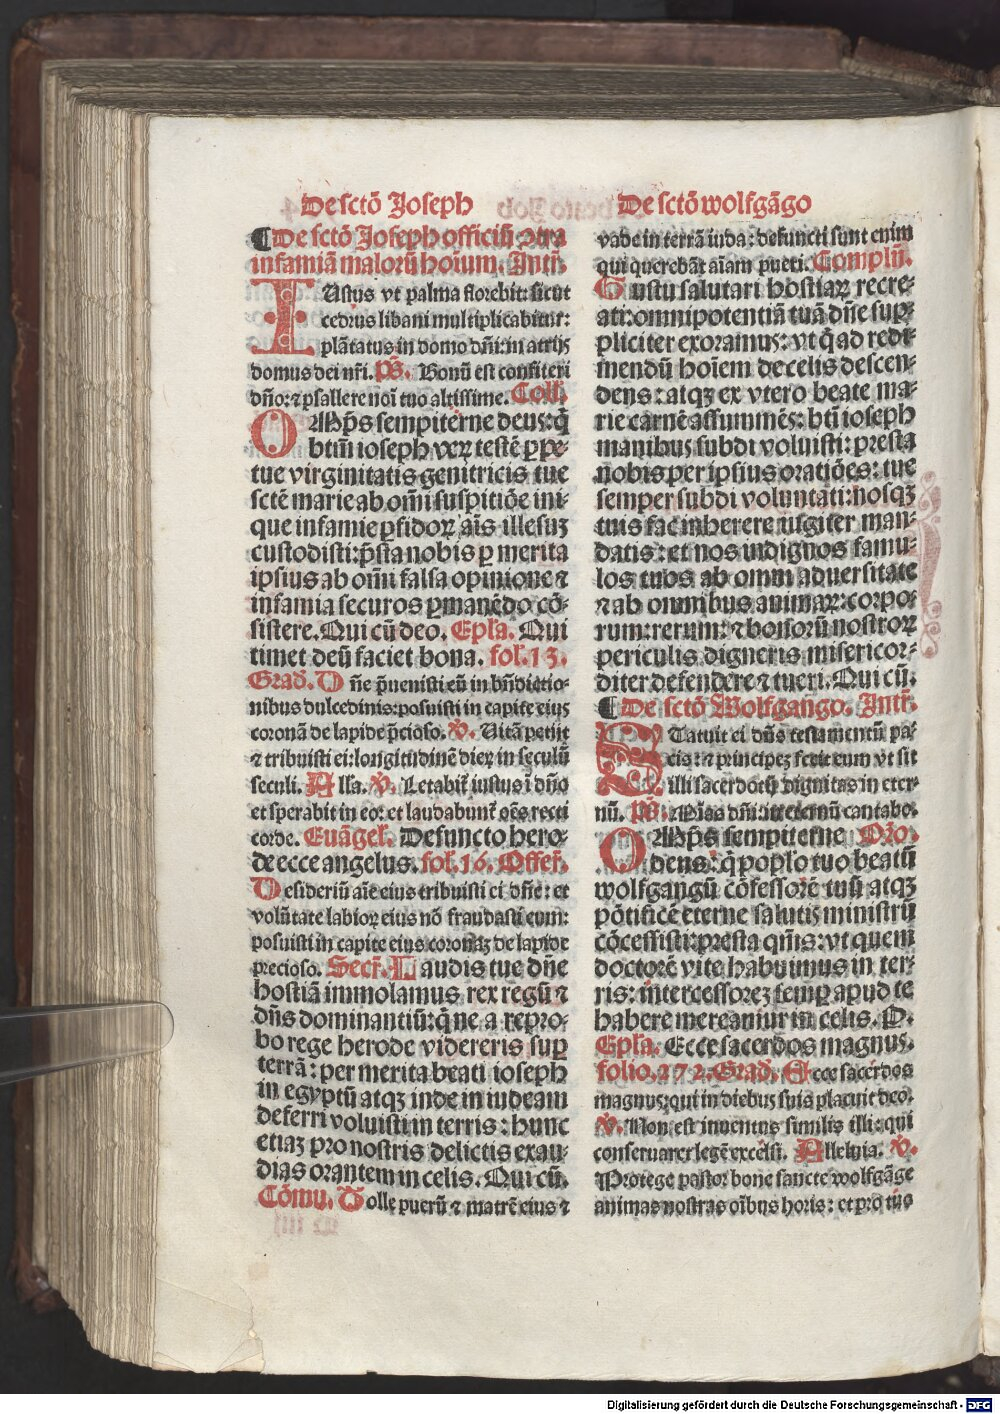 De sctō Joseph
¶ De sctō Joseph officiū ↄtra
infamiā malorū hoīum. Intꝛ̄.
IUstus vt palma florebit: sicut
cedrus libani multiplicabitur:
plātatus in domo dn̄i: in atrijs
domus dei nr̄i. p̄s. Bonū est confiteri
dn̄o: ⁊ psallere noī tuo altissime. Coll̄.
OMp̄s sempiterne deus: q̄
btm̄ ioseph veꝝ testē ꝑpe-
tue virginitatis genitricis tue
sctē marie ab om̄i suspitiōe ini-
que infamie ꝑfidoꝝ aīs illesuꝫ
custodisti: p̄sta nobis ꝑ merita
ipsius ab om̄i falsa opinione ⁊
infamia securos ꝑmanēdo cō-
sistere. Qui cū deo. Epl̄a. Qui
timet deū faciet bona. fol. 13.
Grad̄. Dn̄e p̄uenisti eū in bn̄dictio-
nibus dulcedinis: posuisti in capite eius
coronā de lapide p̄cioso. v̄. Uitā petijt
⁊ tribuisti ei: longitudinē dieꝝ in seculū
seculi. Alla. v̄. Letabit̄ iustus ī dn̄o
et sperabit in eo: et laudabunt̄ oēs recti
corde. Euāgel̄. Defuncto hero-
de ecce angelus. fol. 16. Offer̄.
Desideriū aīe eius tribuisti ei dn̄e: et
volūtate labioꝝ eius nō fraudasti eum:
posuisti in capite eius coronaꝫ de lapide
precioso. Secr̄. Laudis tue dn̄e
hostiā immolamus rex regū ⁊
dn̄s dominantiū: q̄ ne a repro-
bo rege herode videreris suꝑ
terrā: per merita beati ioseph
in egyptū atqꝫ inde in iudeam
deferri voluisti in terris: hunc
etiaꝫ pro nostris delictis exau-
dias orantem in celis. Qui cū.
Cōmu. Tolle puerū ⁊ matrē eius ⁊
De sctō wolfgāgo
vade in terrā iuda: defuncti sunt enim
qui querebāt aīam pueri. Complū.
Gustu salutari hostiaꝝ recre-
ati: omnipotentiā tuā dn̄e sup-
pliciter exoramus: vt q̄ ad redi-
mendū hoīem de celis descen-
dens: atqꝫ ex vtero beate ma-
rie carnē assummēs: btī ioseph
manibus subdi voluisti: presta
nobis per ipsius oratiōes: tue
semper subdi voluntati: nosqꝫ
tuis fac inherere iugiter man-
datis: et nos indignos famu-
los tuos ab omni aduersitate
⁊ ab omnibus animaꝝ: corpo-
rum: rerum: ⁊ honorū nostroꝝ
periculis digneris misericor-
diter defendere ⁊ tueri. Qui cū.
¶ De sctō Wolfgango. Intꝛ̄.
STatuit ei dn̄s testamentū pa-
cis: ⁊ principeꝫ fecit eum vt sit
illi sacerdotij dignitas in eter-
nū. p̄s. M̄ias dn̄i: in eternū cantabo.
OMp̄s sempiterne Or̄o.
deus: q̄ pop̄lo tuo beatū
wolfgangū cōfessorē tuū atqꝫ
pōtificē eterne salutis ministrū
cōcessisti: presta qm̄s: vt quem
doctorē vite habuimus in ter-
ris: intercessoreꝫ semꝑ apud te
habere mereamur in celis. P.
Epl̄a. Ecce sacerdos magnus.
folio. 272. Grad̄. Ecce sacerdos
magnus: qui in diebus suis placuit deo.
v̄. Non est inuentus similis illi: qui
conseruaret legē excelsi. Alleluia. v̄.
Protege pastor bone sancte wolfgāge
animas nostras oībus horis: et pro tuo
Digitalisierung gefördert durch die Deutsche Forschungsgemeinschaft - DFG